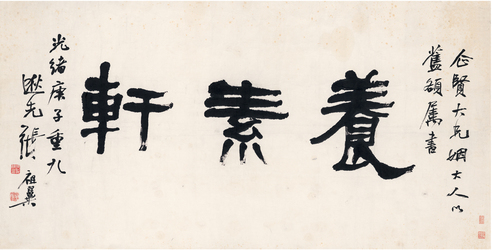 企賢大兄姻大人以
舊額屬書
養素軒
光緒庚子重九
逖先張祖翼